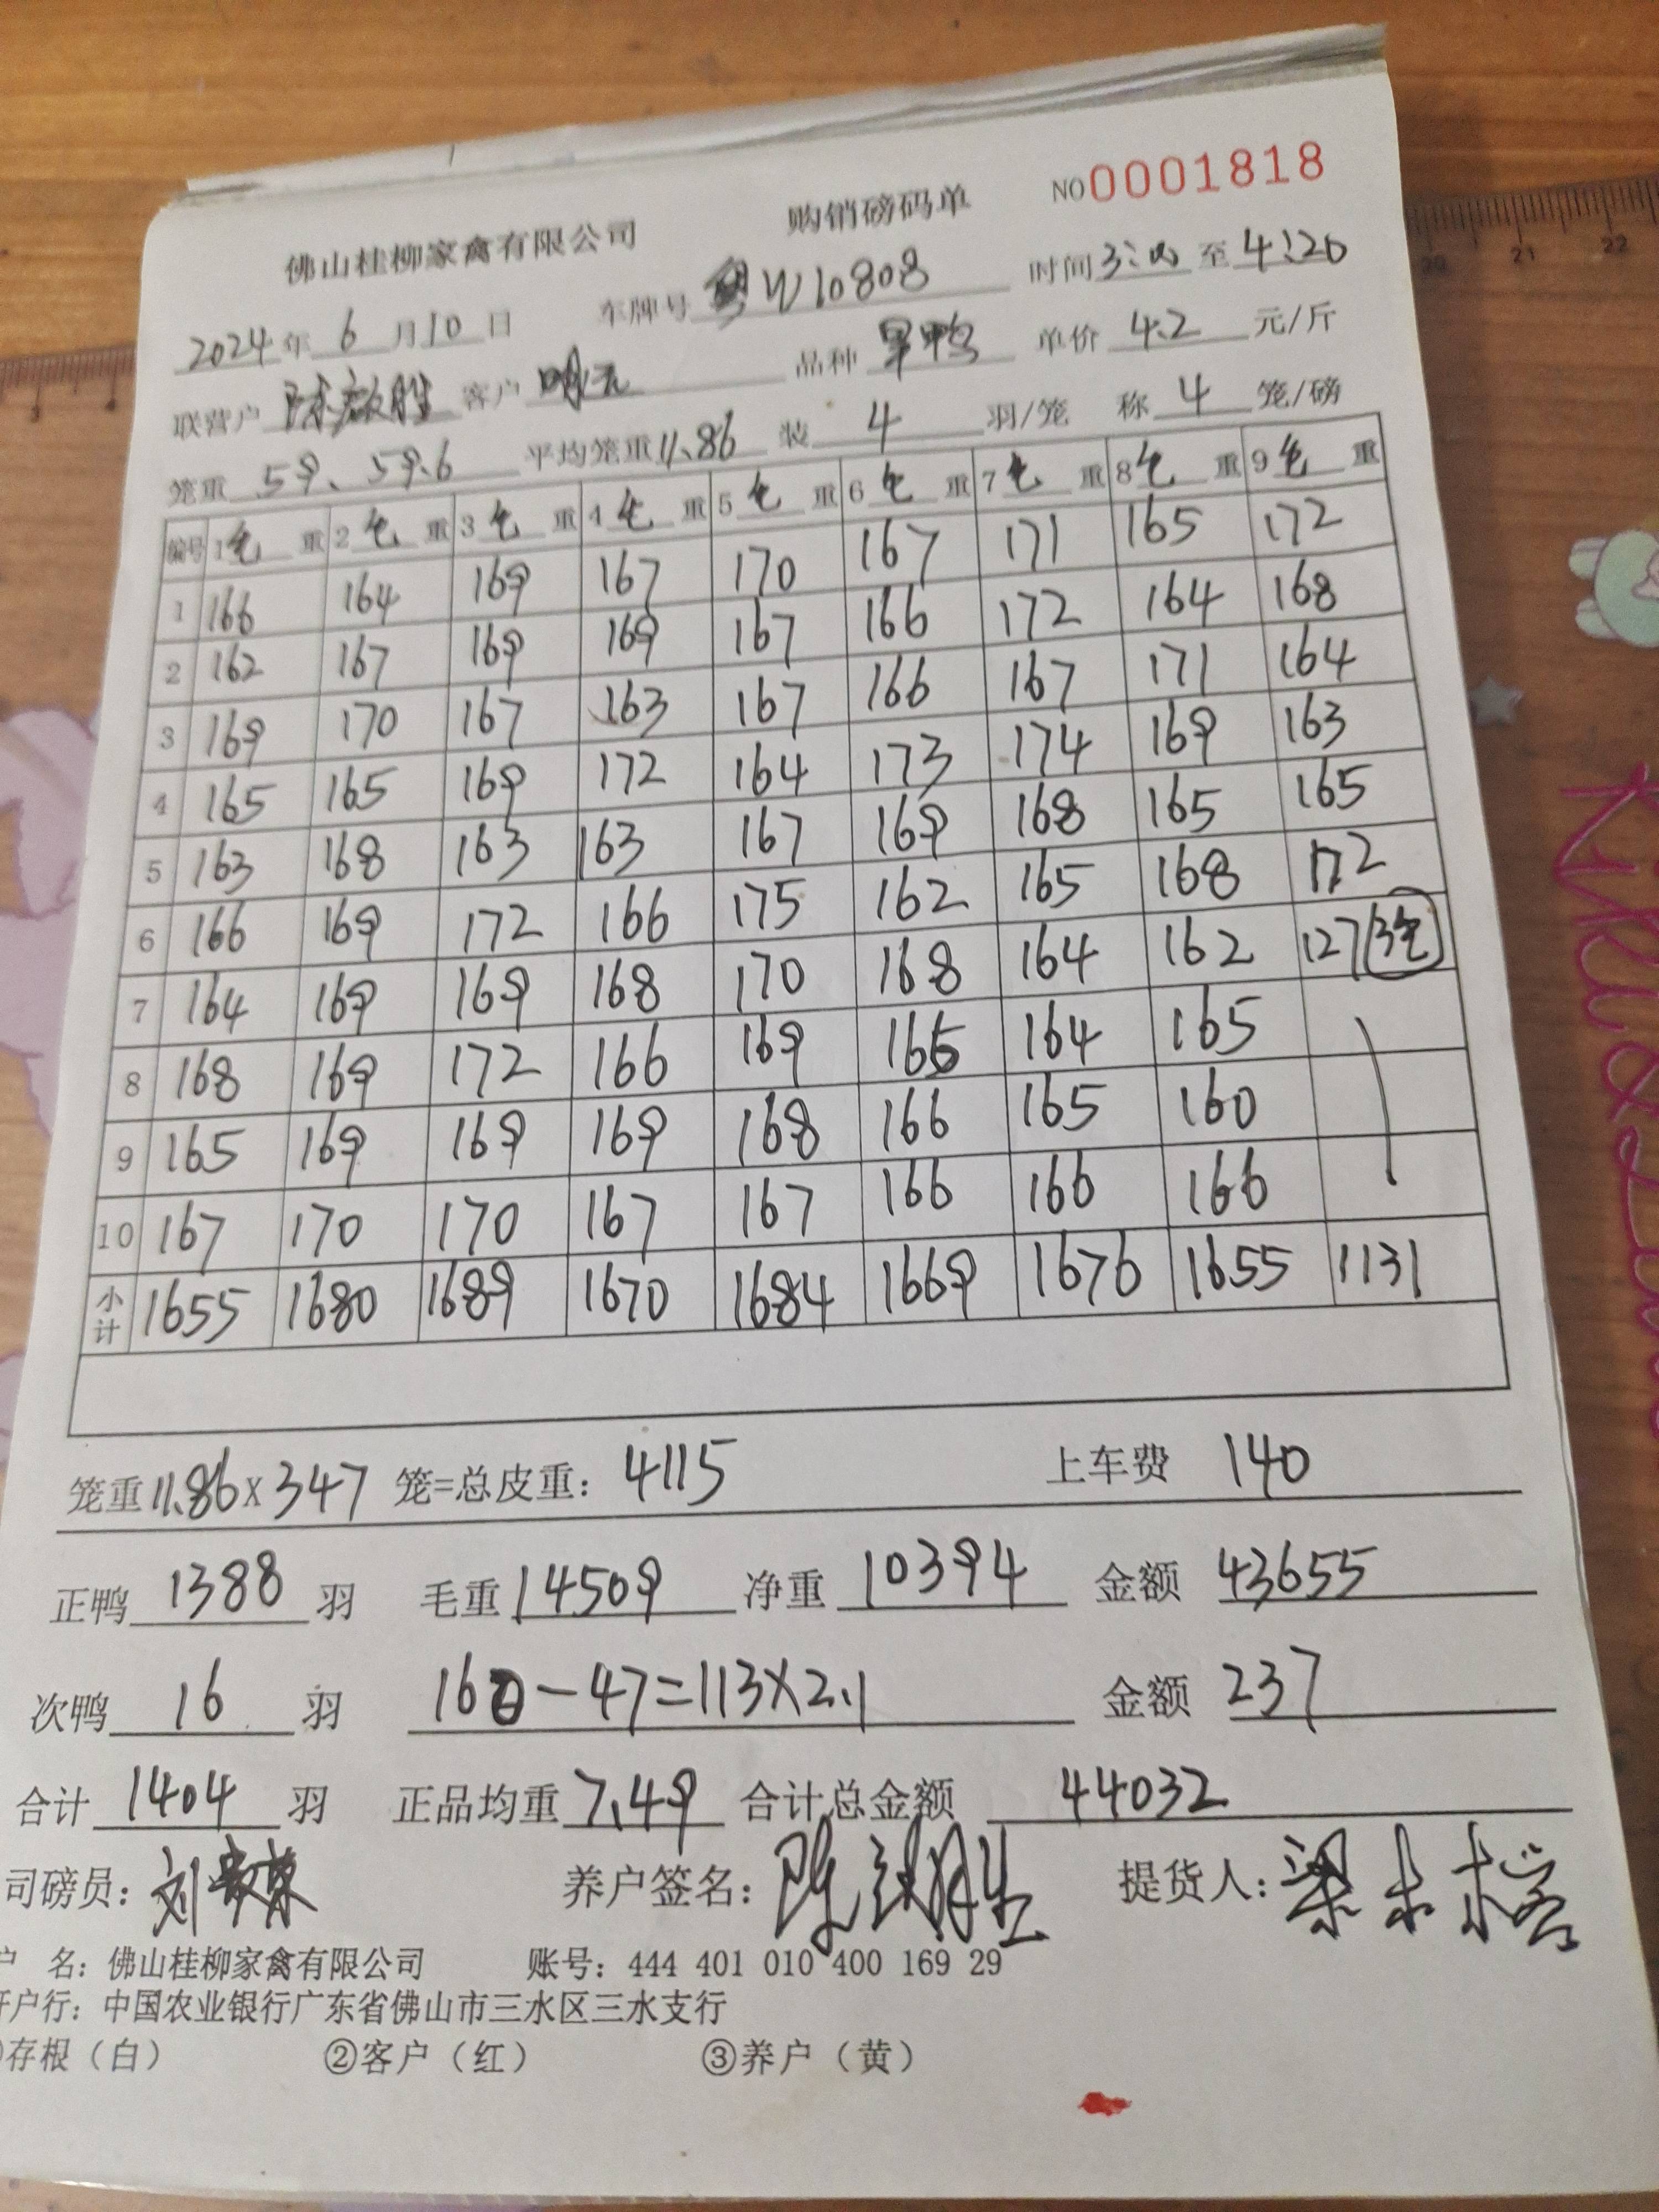 佛山桂柳家禽有限公司 购销磅码单 NO 0001818
2024年6月10日 车牌号 粤W10808 时间 3:00 至 4:20
联营户 客户 明元 品种 旱鸭 单价 4.2 元/斤
笼重 59、59.6 平均笼重 11.86 装 4 羽/笼 称 4 笼/磅
编号 1 毛 重 2 毛 重 3 毛 重 4 毛 重 5 毛 重 6 毛 重 7 毛 重 8 毛 重 9 毛 重
1 166 164 169 167 170 167 171 165 172
2 162 167 169 169 167 166 172 164 168
3 169 170 167 163 167 166 167 171 164
4 165 165 169 172 164 173 174 169 163
5 163 168 163 163 167 169 168 165 165
6 166 169 172 166 175 162 165 168 172
7 164 169 169 168 170 168 164 162 127
8 168 169 172 166 169 166 164 165
9 165 169 169 169 168 166 165 160
10 167 170 170 167 167 166 166 166
小计 1655 1680 1689 1670 1684 1669 1676 1655 1131
笼重 11.86 x 347 笼=总皮重: 4115 上车费 140
正鸭 1388 羽 毛重 14509 净重 10394 金额 43655
次鸭 16 羽 160-47=113X2.1 金额 237
合计 1404 羽 正品均重 7.49 合计总金额 44032
司磅员: 养户签名: 提货人:
户 名: 佛山桂柳家禽有限公司 账号: 444 401 010 400 169 29
开户行: 中国农业银行广东省佛山市三水区三水支行
存根（白） ②客户（红） ③养户（黄）